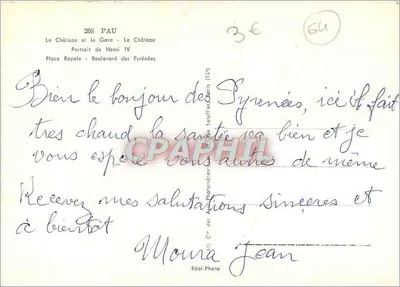 208 PAU
Le Château et la Gare - Le Château
Portrait de Henri IV
Place Royale - Boulevard des Pyrénées
3€
64
Bien le bonjour des Pyrénées, ice il fait
tres chaud, la santée va bien et je
vous espère vous autres de même
CPARPHIL
Recevez mes salutations sinceres et
à bientôt
Moura Jean
Réal-Photo